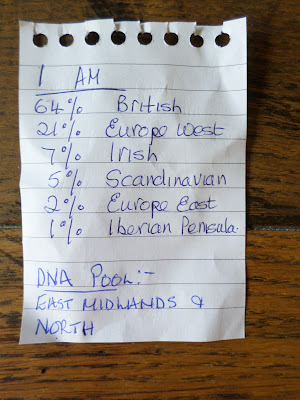 I AM
64% British
21% Europe West
7% Irish
5% Scandinavian
2% Europe East
1% Iberian Penisula.
DNA POOL:-
EAST MIDLANDS &
NORTH